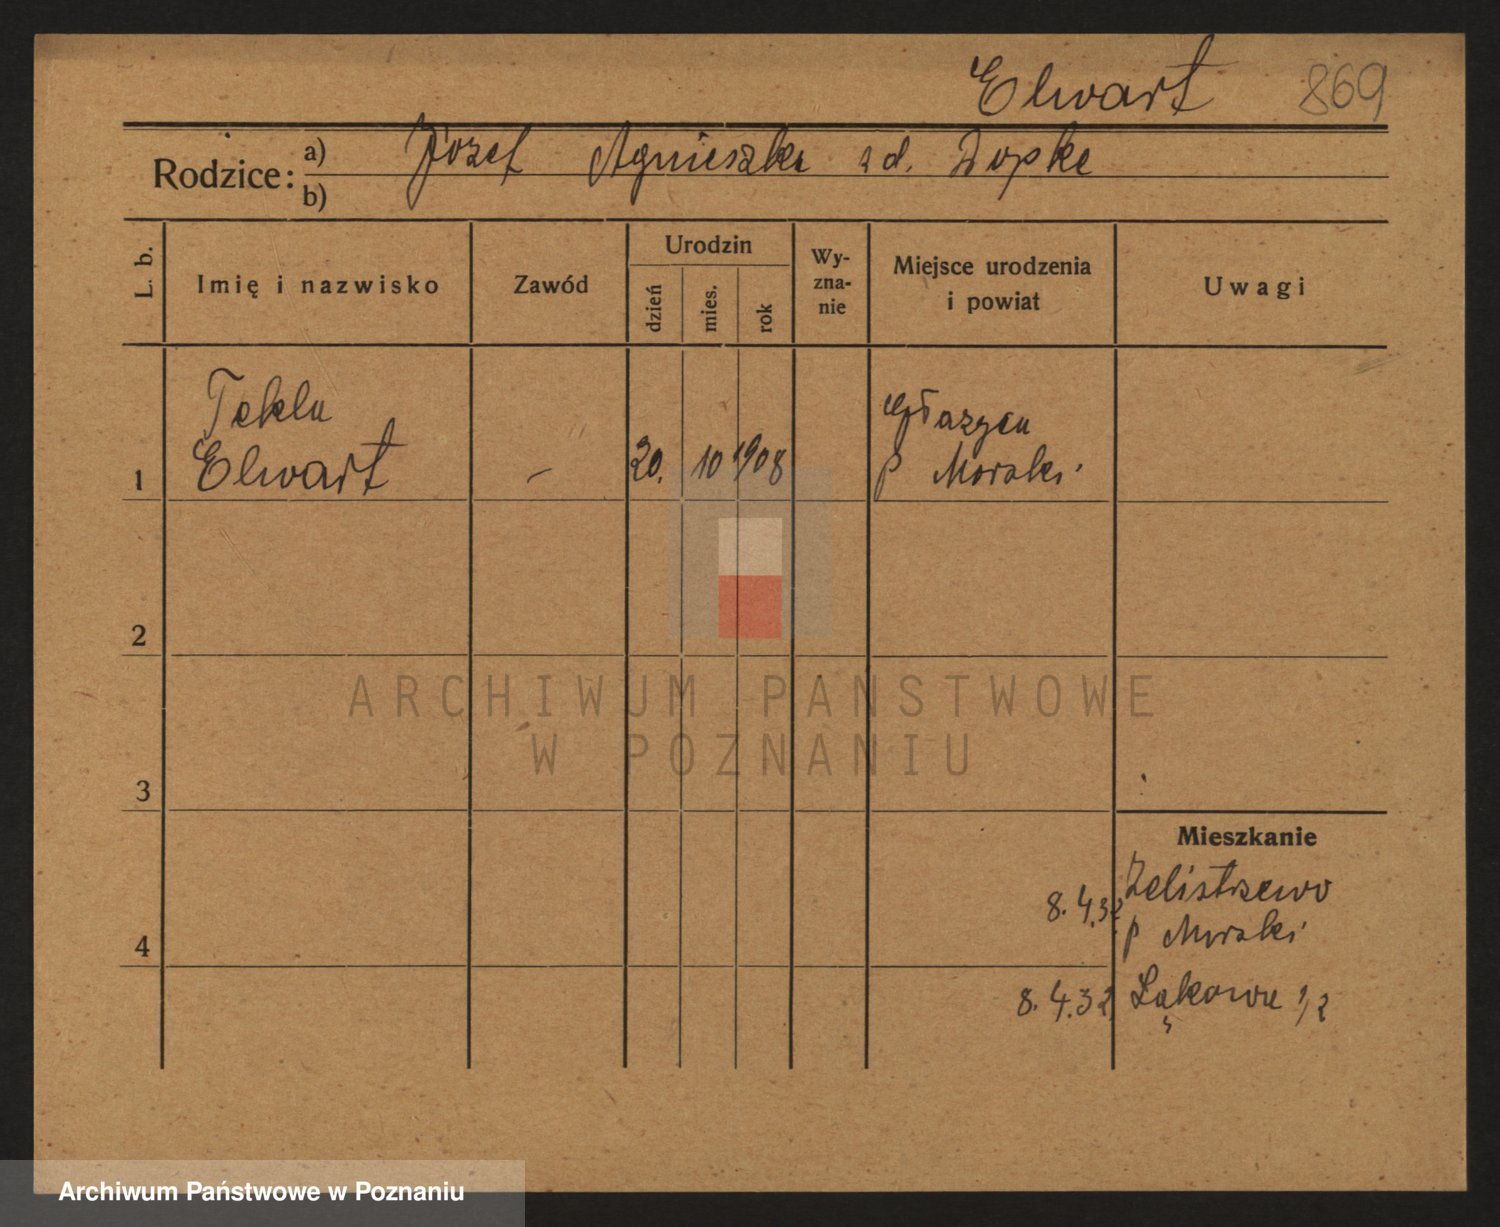 Elwart 869
Rodzice: a) Józef Agnieszka z d.
b)
L. b. Imię i nazwisko Zawód Urodzin dzień mies. rok Wy-zna-nie Miejsce urodzenia i powiat Uwagi
Tekla
1 Elwart – 20. 10 1908
p Morski
2
ARCHIWUM PAŃSTWOWE
W POZNANIU
3
Mieszkanie
8.4.32 Żelistrzewo
4 p Morski
8.4.32 Łąkowa 1/2
Archiwum Państwowe w Poznaniu